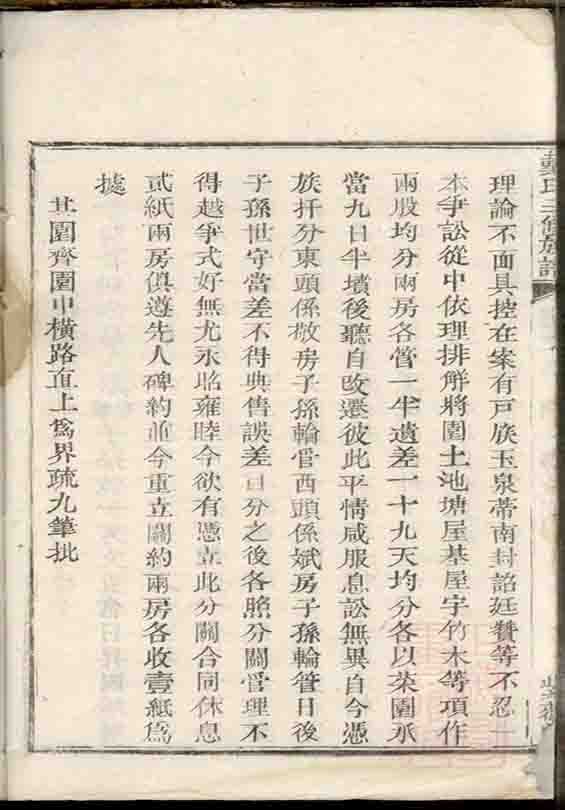 戴氏三修族譜
理論不面具控在案有戸族玉泉蒂南封詒廷贊等不忍一
本爭訟從中依理排解將園土池塘屋基屋宇竹木等項作
兩股均分兩房各管一半遺差一十九天均分各以菜園承
當九日半墳後聽自改遷彼此平情咸服息訟無異自今憑
族扦分東頭係敬房子孫輪管西頭係斌房子孫輪管日後
子孫世守當差不得典售誤差日分之後各照分關管理不
得越爭式好無尤永昭雍睦今欲有憑立此分關合同休息
貳紙兩房俱遵先人碑約並今重立關約兩房各收壹紙為
據
其園齊園中橫路直上為界疏九筆批